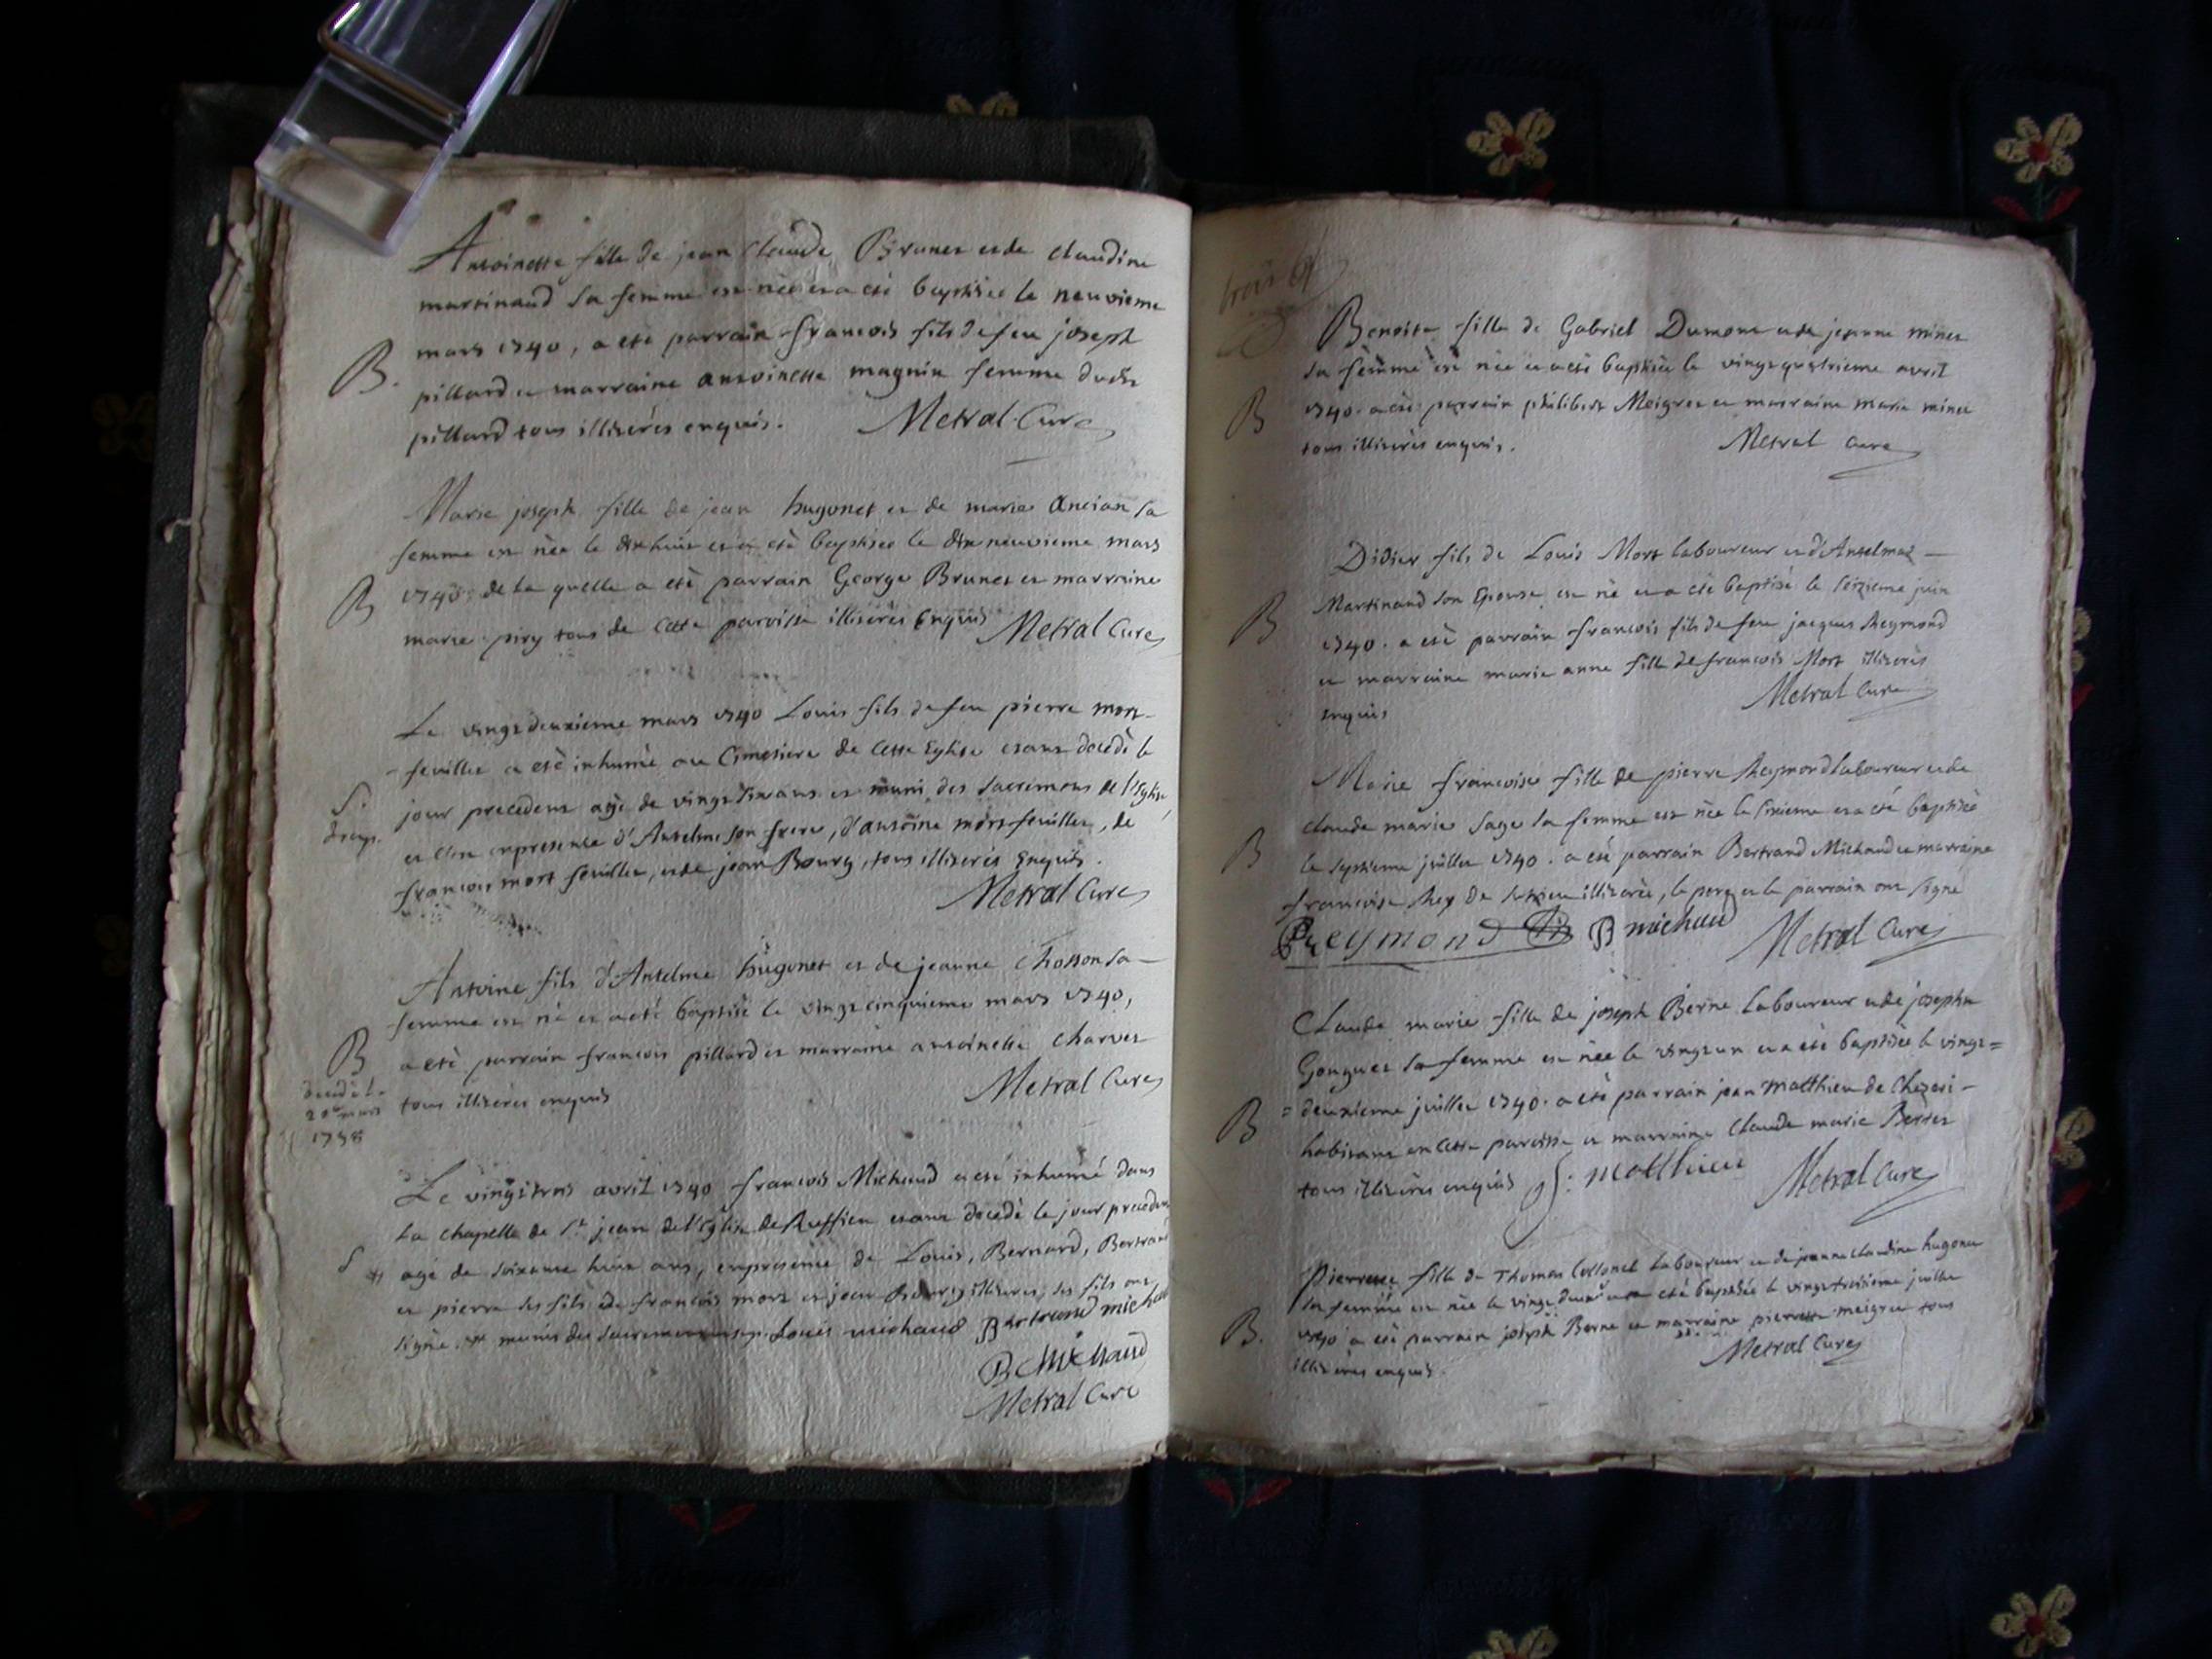 Antoinette fille de jean Claude Brunet et de claudine
martinand sa femme est née et a eté baptisée le neuvieme
mars 1740, a eté parrain francois fils de feu joseph
B.
pillard et marraine antoinette magnin femme dudit
pillard tous illiterés enquis. Metral Curé
Marie joseph fille de jean hugonet et de marie Ancian sa
femme est née le dix huit et a eté baptisée le dix neuvieme mars
B
1740, de la quelle a eté parrain George Brunet et marraine
marie piry tous de cette paroisse illiterés Enquis Metral Curé
Le vingt deuxieme mars 1740 Louis fils de feu pierre mort-
-feuillet a eté inhumé au Cimetiere de cette Eglise etant decedé le
S.
jour precedent agé de vingt ans et muni des sacremens de l'Eglise
et en presence d'Antelme son frere, d'antoine mortfeuillet, de
francois mort feuillet, et de jean Bourg, tous illiterés Enquis.
Metral Curé
Antoine fils d'Antelme hugonet et de jeanne Chosson sa
femme est né et a eté baptisé le vingt cinquieme mars 1740,
B
a eté parrain francois pillard et marraine antoinette Charvet
decedé le
20e mars
1758
tous illiterés enquis Metral Curé
Le vingt trois avril 1740 francois Michaud a eté inhumé dans
la chapelle de St jean de l'Eglise de Ruffieu etant decedé le jour precedent
S
agé de soixante huit ans, en presence de Louis, Bernard, Bertrand
et pierre ses fils, de francois mort et jean Bourg illiteres, ses fils ont
signé. munis des sacremens Louis michaud Bertrand michaud
B Michaud
Metral Curé
Benoite fille de Gabriel Dumont et de jeanne minet
sa femme est née et a eté baptisée le vingt quatrieme avril
B
1740. a eté parrain philibert Meigret et marraine marie minet
tous illiterés enquis. Metral curé
Didier fils de Louis Mort laboureur et d'Antelmaz
Martinand son Epouse est né et a eté baptisé le seizieme juin
B
1740. a eté parrain francois fils de feu jacques Reymond
et marraine marie anne fille de francois Mort illiterés
enquis Metral Curé
Marie francoise fille de pierre Reymond laboureur et de
claude marie Sage sa femme est née le sixieme et a eté baptisée
B
le septieme juillet 1740. a eté parrain Bertrand Michaud et marraine
francoise Rey de illiterée, le pere et le parrain ont signé
Reymond B michaud Metral Curé
Claude marie fille de joseph Berne laboureur et de josephe
Gonguet sa femme est née le vingt un et a eté baptisée le vingt=
B
=deuxieme juillet 1740. a eté parrain jean Matthieu de Chezeri
habitant en cette paroisse et marraine Claude marie Bertet
tous illiterés enquis J: Matthieu Metral Curé
Pierrette fille de Thomas Collonet laboureur et de jeanne claudine hugonet
sa femme est née le vingt deux et a eté baptisée le vingt troisieme juillet
B.
1740 a eté parrain joseph Berne et marraine pierrette meigret tous
illiterés enquis. Metral Curé